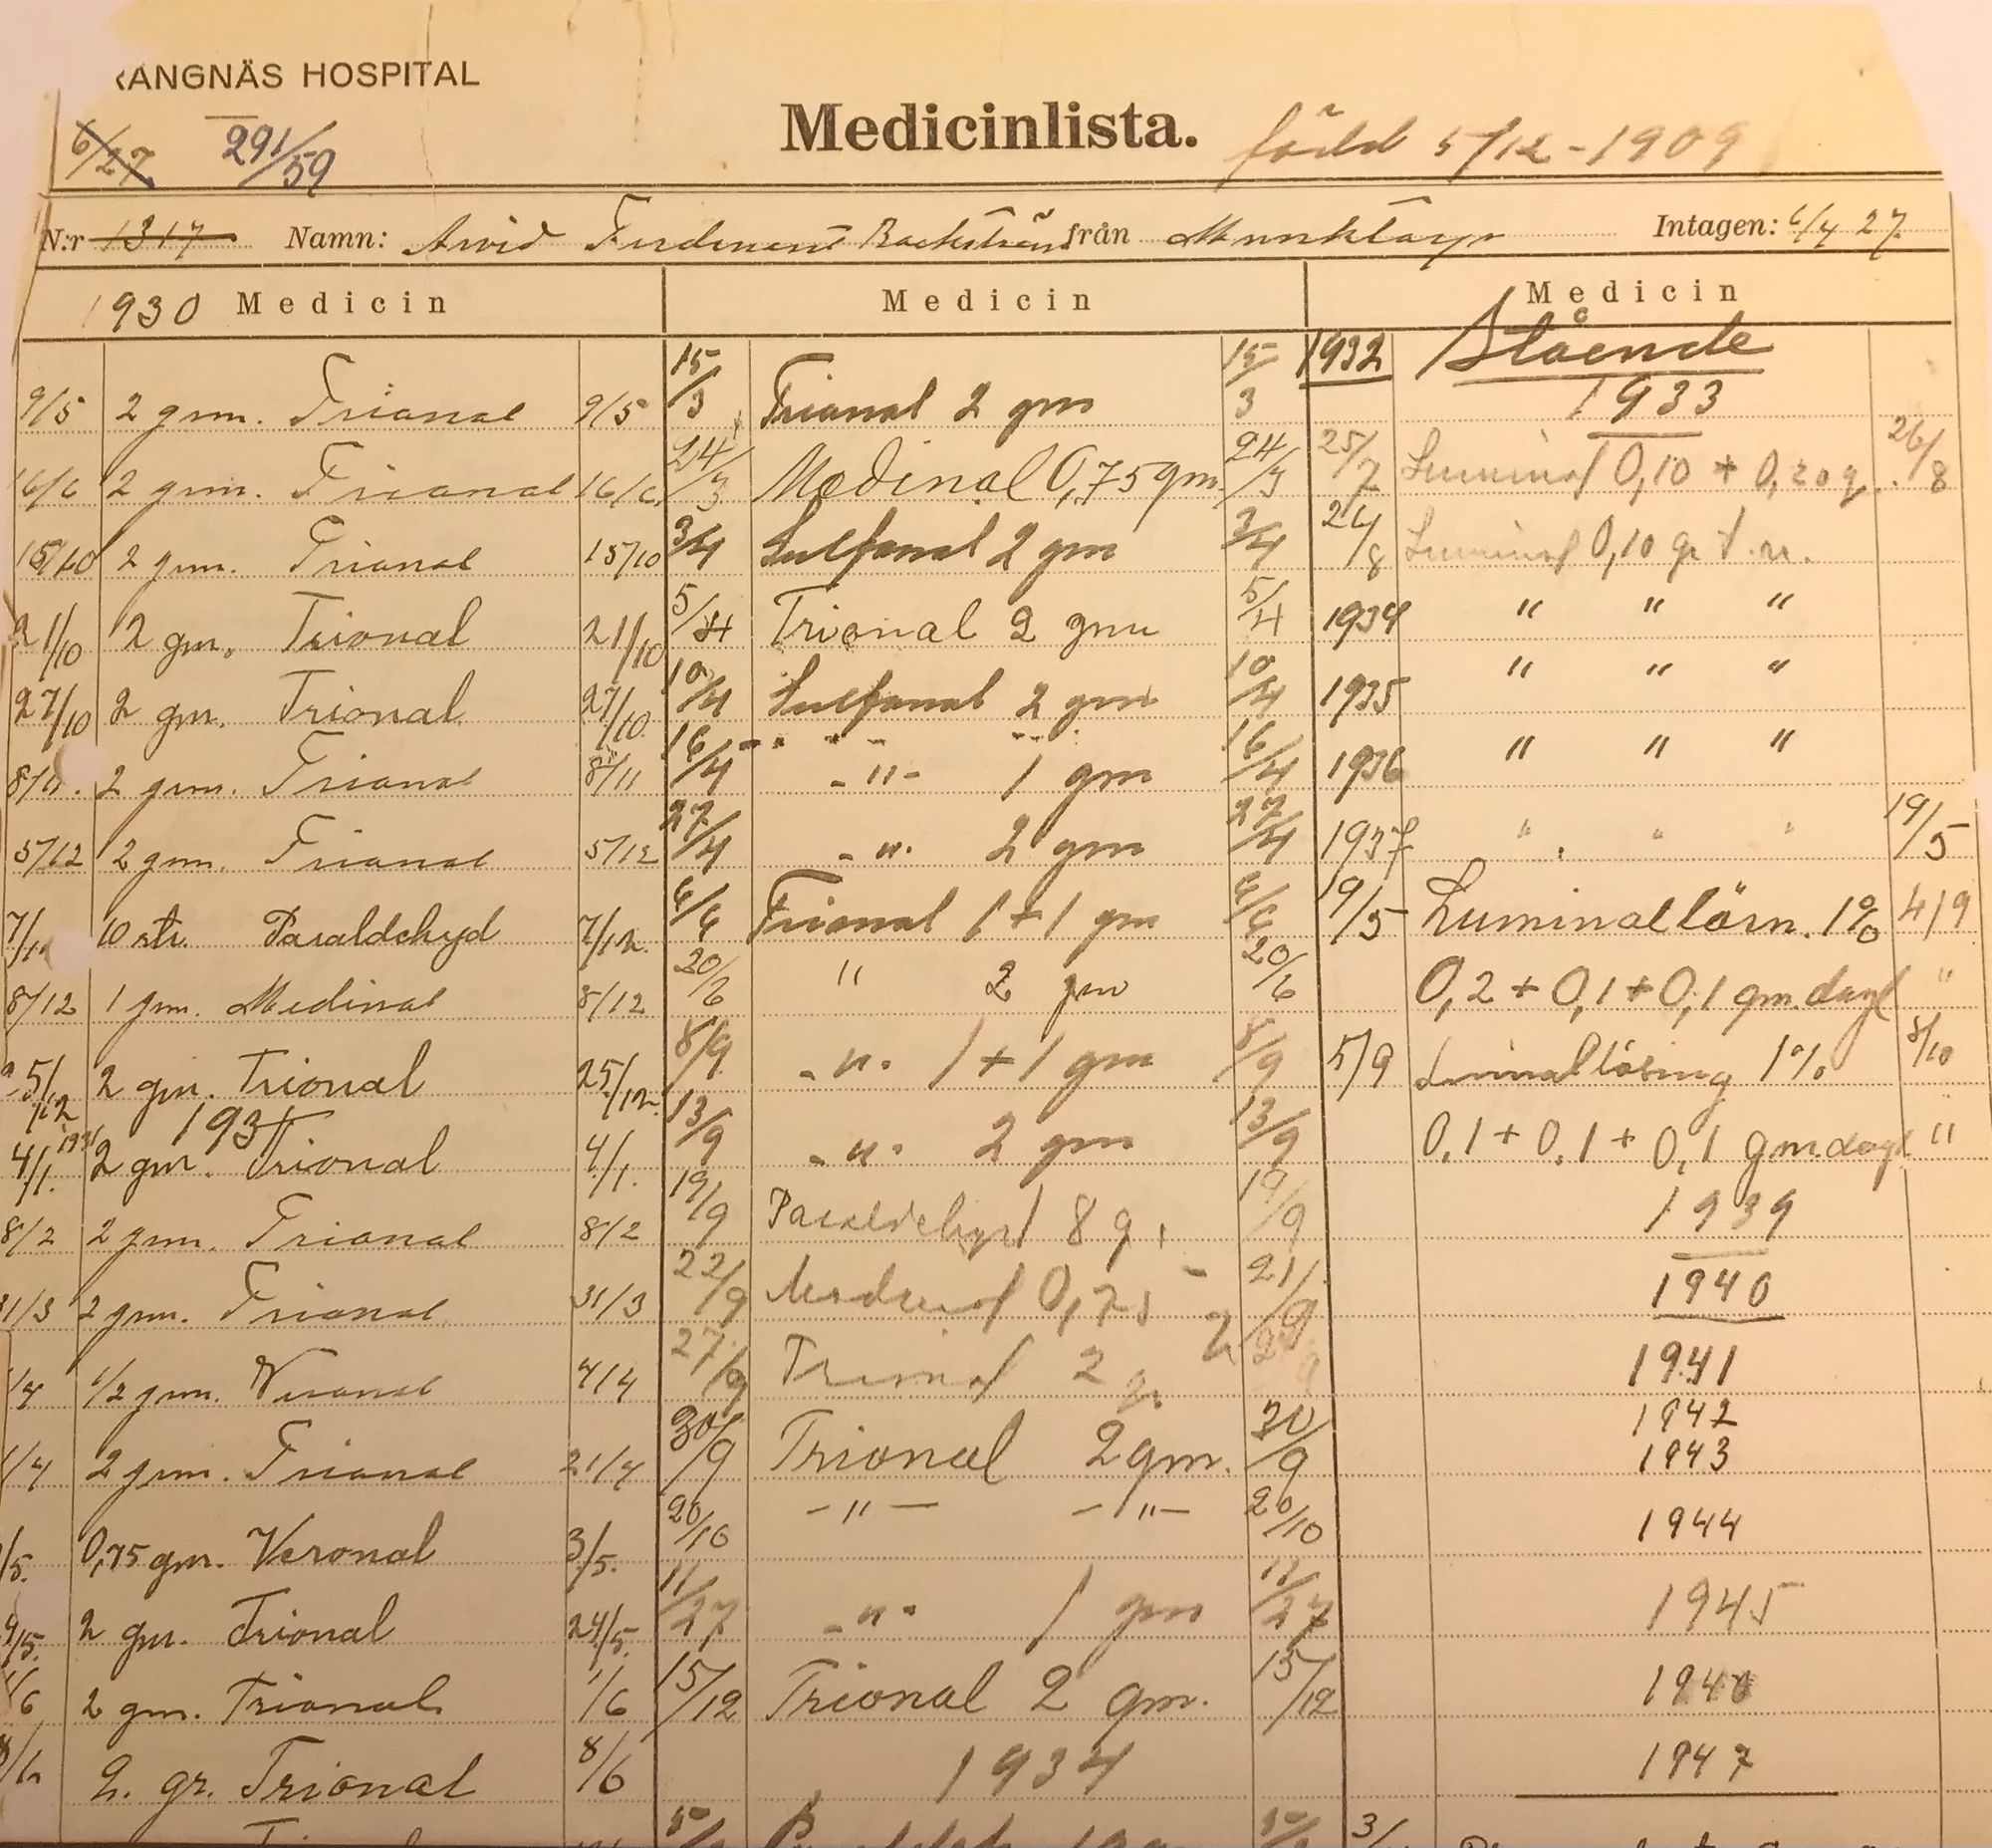 ANGNÄS HOSPITAL
Medicinlista.
född 5/12-1909
6/27 291/59
N:r 1317 Namn: Arvid Ferdinand Backström från Intagen: 6/4 27
1930 Medicin
9/5 2 gm. Trional 9/5
16/6 2 gm. Trional 16/6
15/10 2 gm. Trional 15/10
21/10 2 gm. Trional 21/10
27/10 2 gm. Trional 27/10
8/11. 2 gm. Trional 8/11
5/12 2 gm. Trional 5/12
7/12 10 str. Paraldehyd 7/12.
8/12 1 gm. Medinal 8/12
25/12 2 gm. Trional 25/12.
1931
4/1. 1931 2 gm. Trional 4/1.
8/2 2 gm. Trional 8/2
31/3 2 gm. Trional 31/3
/4 1/2 gm. Veronal 4/4
1/4 2 gm. Trional 21/4
/5. 0,75 gm. Veronal 3/5.
4/5. 2 gm. Trional 24/5.
1/6 2 gm. Trional 1/6
8/6 2. gr. Trional 8/6
Medicin
15/3 Trional 2 gm 15/3
24/3 Medinal 0,75 gm. 24/3
3/4 Sulfonal 2 gm 3/4
5/4 Trional 2 gm 5/4
10/4 Sulfonal 2 gm 10/4
16/4 -"- 1 gm 16/4
27/4 -"- 2 gm 27/4
6/6 Trional 1+1 gm 6/6
20/6 " 2 gm 20/6
8/9 -"- 1+1 gm 8/9
13/9 -"- 2 gm 13/9
19/9 Paraldehyd 8 g. 19/9
22/9 Medinal 0,75 21/9
27/9 Trional 2 g.
30/9 Trional 2 gm. 30/9
20/10 -"- -"- 20/10
11/27 -"- 1 gm 11/27
15/12 Trional 2 gm. 15/12
1934
Medicin
1932 Stående
1933
25/7 Luminal 0,10 + 0,20 g. 26/8
26/8 Luminal 0,10 gr t. n.
1934 " " "
1935 " " "
1936 " " "
1937 " " " 19/5
19/5 Luminallösn. 1% 4/9
0,2 + 0,1 + 0,1 gm. dagl "
5/9 Luminallösning 1% 8/10
0,1 + 0,1 + 0,1 gm dagl "
1939
1940
1941
1942
1943
1944
1945
1946
1947